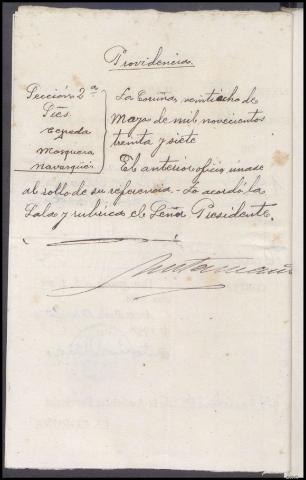 Providencia.
Sección 2ª
Sres.
Cepeda
Mosquera
Navarqués
La Coruña veintiocho de
Mayo de mil novecientos
treinta y siete
El anterior oficio únase
al rollo de su referencia.- Lo acordó la
Sala y rubrica el Señor Presidente.